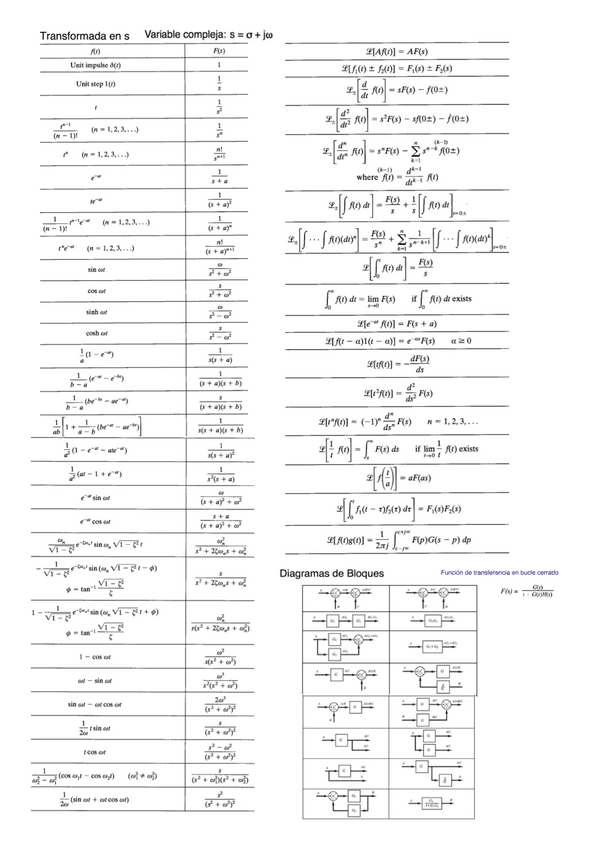 Transformada en s Variable compleja: s = σ + jω
f(t) F(s)
Unit impulse δ(t) 1
Unit step 1(t) 1/s
t 1/s²
tⁿ⁻¹/(n − 1)! (n = 1, 2, 3, . . .) 1/sⁿ
tⁿ (n = 1, 2, 3, . . .) n!/sⁿ⁺¹
e⁻ᵃᵗ 1/(s + a)
te⁻ᵃᵗ 1/(s + a)²
1/(n − 1)! tⁿ⁻¹e⁻ᵃᵗ (n = 1, 2, 3, . . .) 1/(s + a)ⁿ
tⁿe⁻ᵃᵗ (n = 1, 2, 3, . . .) n!/(s + a)ⁿ⁺¹
sin ωt ω/(s² + ω²)
cos ωt s/(s² + ω²)
sinh ωt ω/(s² − ω²)
cosh ωt s/(s² − ω²)
1/a (1 − e⁻ᵃᵗ) 1/(s(s + a))
1/(b − a) (e⁻ᵃᵗ − e⁻ᵇᵗ) 1/((s + a)(s + b))
1/(b − a) (be⁻ᵇᵗ − ae⁻ᵃᵗ) s/((s + a)(s + b))
1/ab [1 + 1/(a − b) (be⁻ᵃᵗ − ae⁻ᵇᵗ)] 1/(s(s + a)(s + b))
1/a² (1 − e⁻ᵃᵗ − ate⁻ᵃᵗ) 1/(s(s + a)²)
1/a² (at − 1 + e⁻ᵃᵗ) 1/(s²(s + a))
e⁻ᵃᵗ sin ωt ω/((s + a)² + ω²)
e⁻ᵃᵗ cos ωt (s + a)/((s + a)² + ω²)
ωₙ/√(1 − ζ²) e^(−ζωₙt) sin ωₙ √(1 − ζ²) t ωₙ²/(s² + 2ζωₙs + ωₙ²)
− 1/√(1 − ζ²) e^(−ζωₙt) sin (ωₙ √(1 − ζ²) t − φ) s/(s² + 2ζωₙs + ωₙ²)
φ = tan⁻¹ √(1 − ζ²)/ζ
1 − 1/√(1 − ζ²) e^(−ζωₙt) sin (ωₙ √(1 − ζ²) t + φ) ωₙ²/(s(s² + 2ζωₙs + ωₙ²))
φ = tan⁻¹ √(1 − ζ²)/ζ
1 − cos ωt ω²/(s(s² + ω²))
ωt − sin ωt ω³/(s²(s² + ω²))
sin ωt − ωt cos ωt 2ω³/(s² + ω²)²
1/2ω t sin ωt s/(s² + ω²)²
t cos ωt (s² − ω²)/(s² + ω²)²
1/(ω₂² − ω₁²) (cos ω₁t − cos ω₂t) (ω₁² ≠ ω₂²) s/((s² + ω₁²)(s² + ω₂²))
1/2ω (sin ωt + ωt cos ωt) s²/(s² + ω²)²
ℒ[Af(t)] = AF(s)
ℒ[f₁(t) ± f₂(t)] = F₁(s) ± F₂(s)
ℒ±[d/dt f(t)] = sF(s) − f(0±)
ℒ±[d²/dt² f(t)] = s²F(s) − sf(0±) − ḟ(0±)
ℒ±[dⁿ/dtⁿ f(t)] = sⁿF(s) − Σₖ₌₁ⁿ sⁿ⁻ᵏ f⁽ᵏ⁻¹⁾(0±)
where f⁽ᵏ⁻¹⁾(t) = dᵏ⁻¹/dtᵏ⁻¹ f(t)
ℒ±[∫ f(t) dt] = F(s)/s + 1/s [∫ f(t) dt]ₜ₌₀±
ℒ±[∫ · · · ∫ f(t)(dt)ⁿ] = F(s)/sⁿ + Σₖ₌₁ⁿ 1/sⁿ⁻ᵏ⁺¹ [∫ · · · ∫ f(t)(dt)ᵏ]ₜ₌₀±
ℒ[∫₀ᵗ f(t) dt] = F(s)/s
∫₀^∞ f(t) dt = lim s→0 F(s) if ∫₀^∞ f(t) dt exists
ℒ[e⁻ᵃᵗ f(t)] = F(s + a)
ℒ[f(t − α)1(t − α)] = e^(−αs)F(s) α ≥ 0
ℒ[tf(t)] = − dF(s)/ds
ℒ[t²f(t)] = d²/ds² F(s)
ℒ[tⁿf(t)] = (−1)ⁿ dⁿ/dsⁿ F(s) n = 1, 2, 3, . . .
ℒ[1/t f(t)] = ∫ₛ^∞ F(s) ds if lim t→0 1/t f(t) exists
ℒ[f(t/a)] = aF(as)
ℒ[∫₀ᵗ f₁(t − τ)f₂(τ) dτ] = F₁(s)F₂(s)
ℒ[f(t)g(t)] = 1/2πj ∫ F(p)G(s − p) dp
Diagramas de Bloques
Función de transferencia en bucle cerrado
F(s) = G(s)/(1 · G(s)H(s))